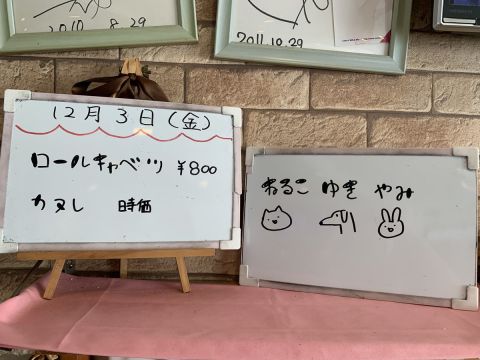 2010.8.29
2011.10.29
12月3日(金)
ロールキャベツ ¥800
カヌレ 時価
ねるこ ゆき やみ